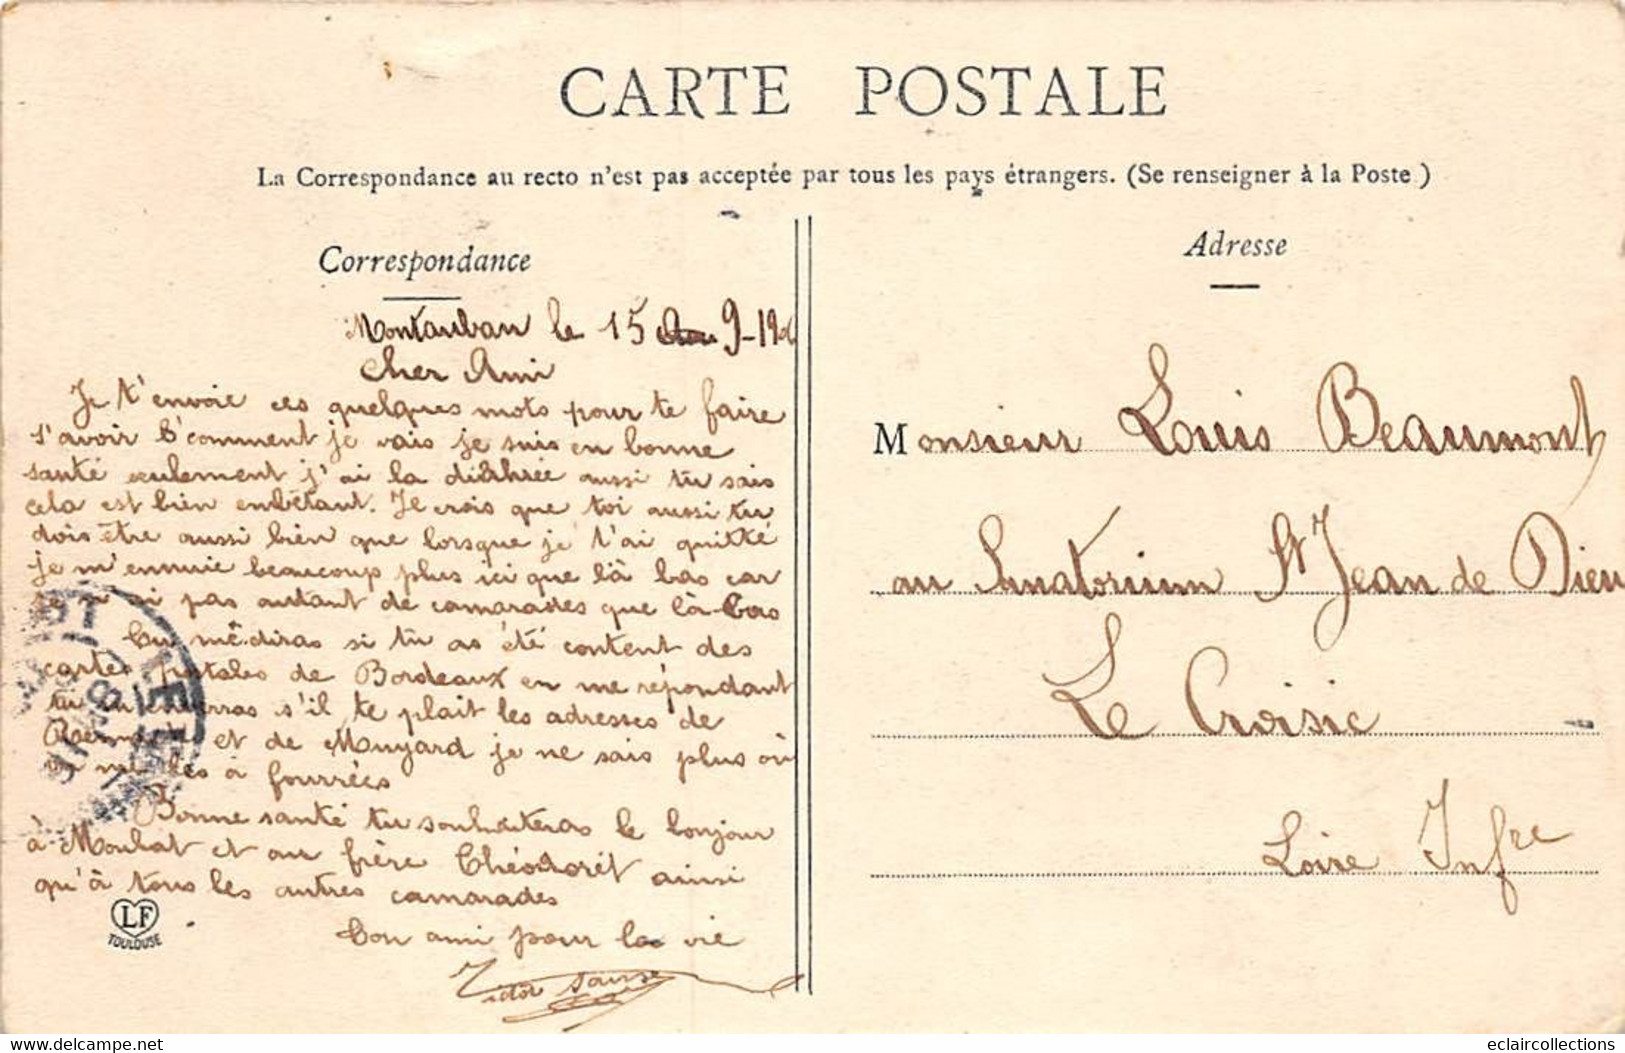 CARTE POSTALE
La Correspondance au recto n'est pas acceptée par tous les pays étrangers. (Se renseigner à la Poste)
Correspondance
Montauban le 15 9-190
Cher Ami
Je t'envoie ces quelques mots pour te faire
s'avoir c'comment je vais je suis en bonne
santé seulement j'ai la diarhrée aussi tu sais
cela est bien embêtant. Je crois que toi aussi tu
dois être aussi bien que lorsque je t'ai quitté
je m'ennuie beaucoup plus ici que là bas car
je n'ai pas autant de camarades que là-bas
Tu mêdiras si tu as été content des
cartes postales de Bordeaux en me répondant
tu s'il te plait les adresses de
et de Muyard je ne sais plus où
je me les à fourrées
Bonne santé tu souhaiteras le bonjour
à Moulat et au frère Théodorêt ainsi
qu'à tous les autres camarades
Ton ami pour la vie
Victor
LF
TOULOUSE
Adresse
Monsieur Louis Beaumont
au Sanatorium St Jean de Dieu
Le Croisic
Loire Infre
eclaircollections
www.delcampe.net